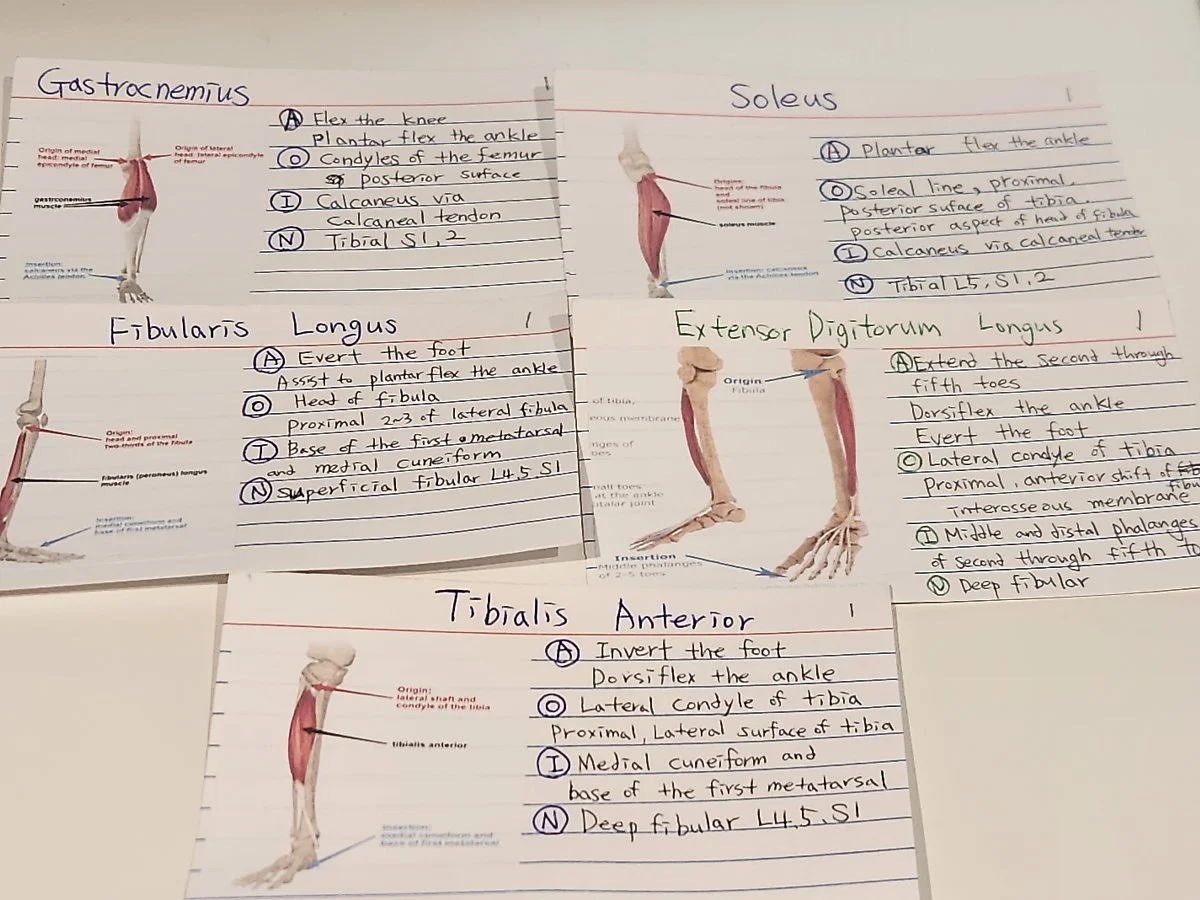 Gastrocnemius
Origin of medial
head: medial
epicondyle of femur
Origin of lateral
head: lateral epicondyle
of femur
gastrocnemius
muscle
Insertion:
calcaneus via the
Achilles tendon
A Flex the knee
Plantar flex the ankle
O Condyles of the femur
posterior surface
I Calcaneus via
Calcaneal tendon
N Tibial S1,2
Soleus 1
Origins:
head of the fibula
and
soleal line of tibia
(not shown)
soleus muscle
Insertion: calcaneus
via the Achilles tendon
A Plantar flex the ankle
O Soleal line, proximal,
posterior suface of tibia.
posterior aspect of head of fibula
I Calcaneus via calcaneal tendon
N Tibial L5, S1,2
Fibularis Longus 1
Origin:
head and proximal
two-thirds of the fibula
fibularis (peroneus) longus
muscle
Insertion:
medial cuneiform and
base of first metatarsal
A Evert the foot
Assist to plantar flex the ankle
O Head of fibula
proximal 2~3 of lateral fibula
I Base of the first metatarsal
and medial cuneiform
N superficial fibular L4,5 S1
Extensor Digitorum Longus 1
Origin
Fibula
of tibia,
eous membrane
nges of
oes
mall toes
at the ankle
btalar joint
Insertion
Middle phalanges
of 2-5 toes
A Extend the second through
fifth toes
Dorsiflex the ankle
Evert the foot
O Lateral condyle of tibia
Proximal, anterior shift of fib
fibu
interosseous membrane
I Middle and distal phalanges
of second through fifth to
N Deep fibular
Tibialis Anterior 1
Origin:
lateral shaft and
condyle of the tibia
tibialis anterior
Insertion:
medial cuneiform and
base of first metatarsal
A Invert the foot
Dorsiflex the ankle
O Lateral condyle of tibia
Proximal, Lateral surface of tibia
I Medial cuneiform and
base of the first metatarsal
N Deep fibular L4,5,S1